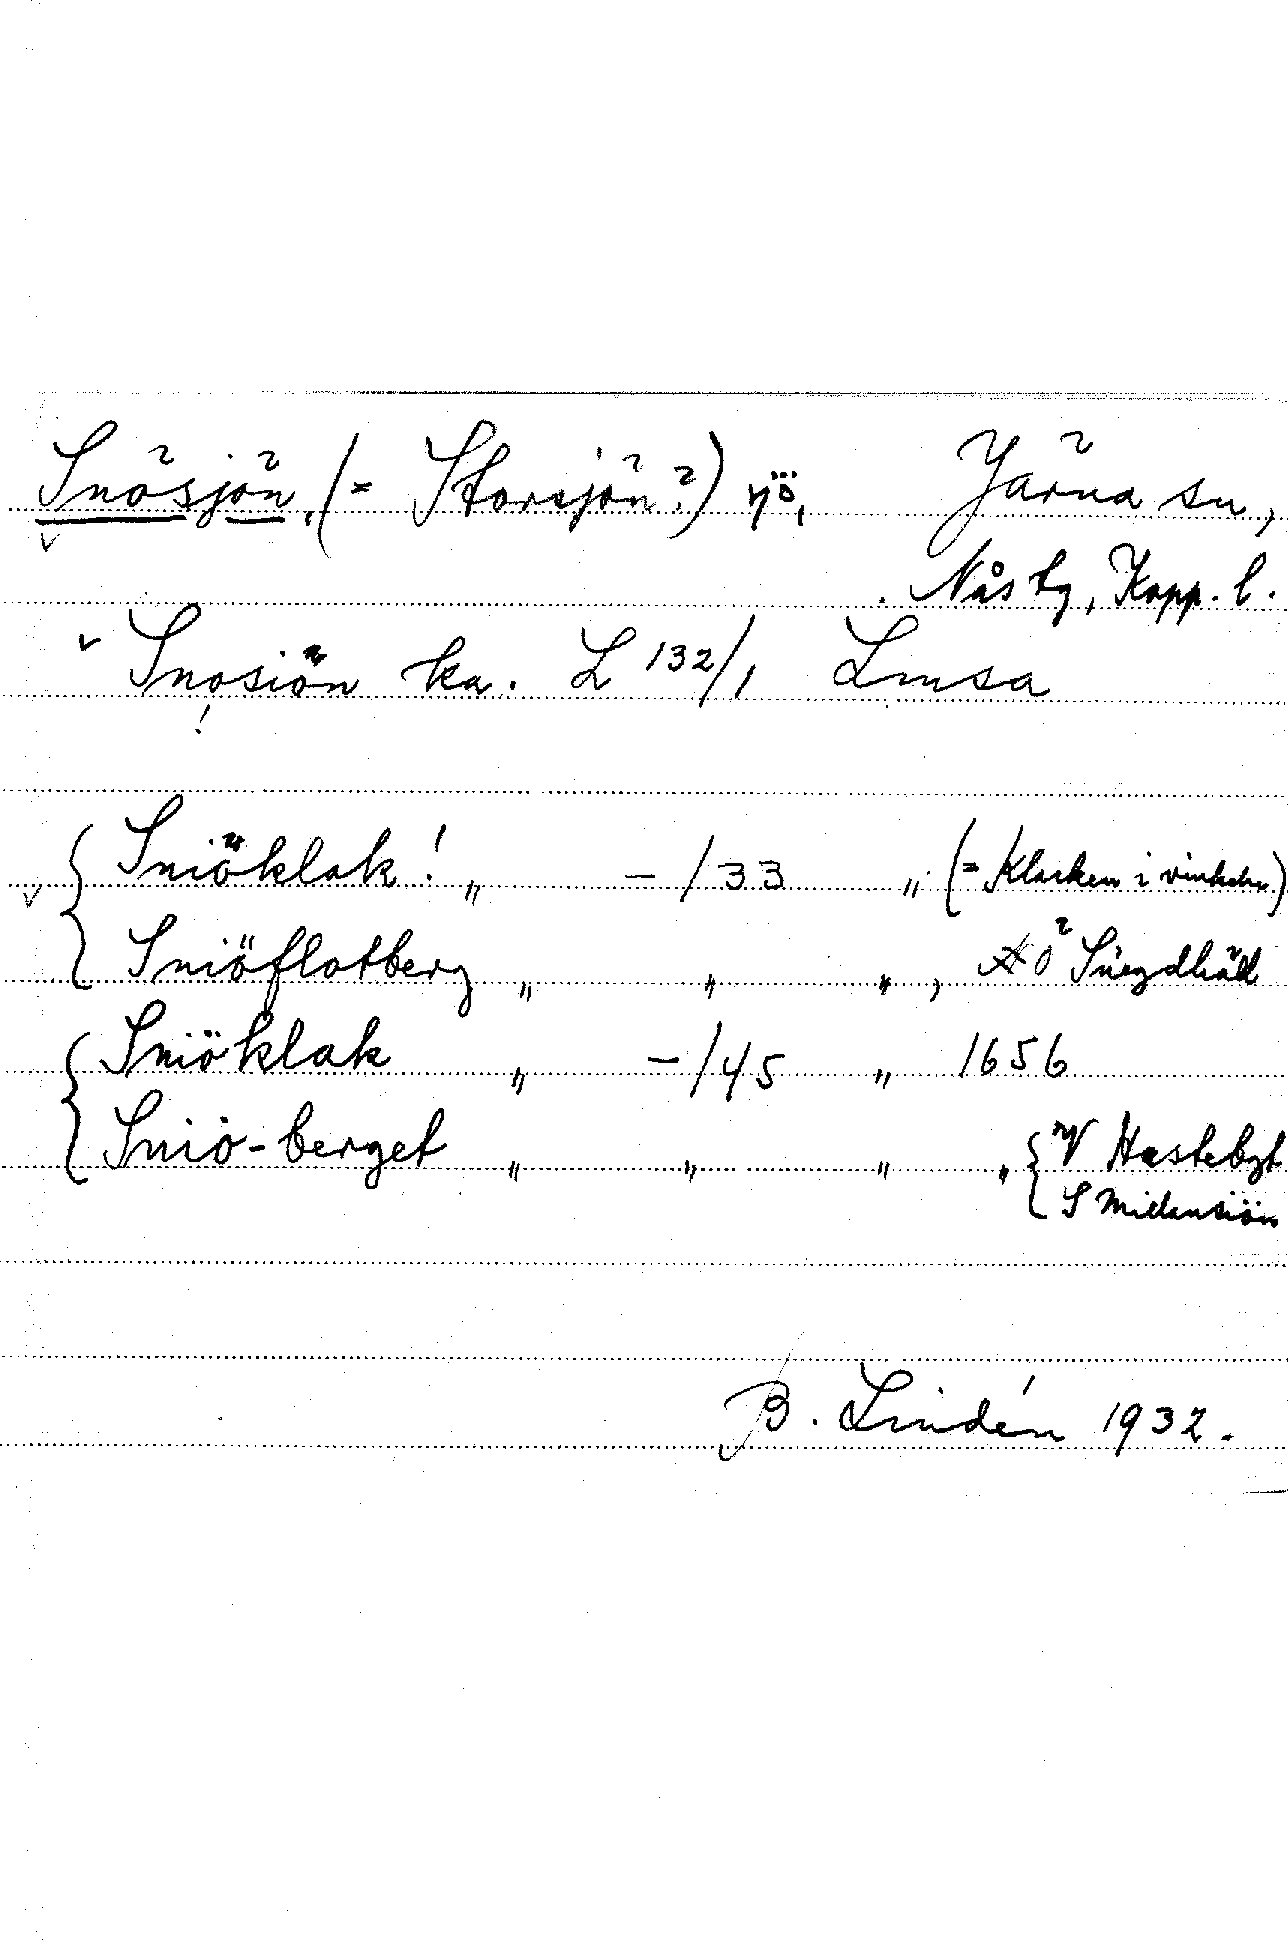 Snösjön, (= Storsjön?) nö, Järna sn,
Nås tg, Kopp. l.
Snosiön ka. L 132/1 Lmsa
Sniöklak! „ – /33 „ (= Klacken i
Sniöflotberg „ „ „ ,
Sniöklak „ – /45 „ 1656
Sniö-berget „ „ „ „ V Hastebgt
S Midensiön
B. Lindén 1932.